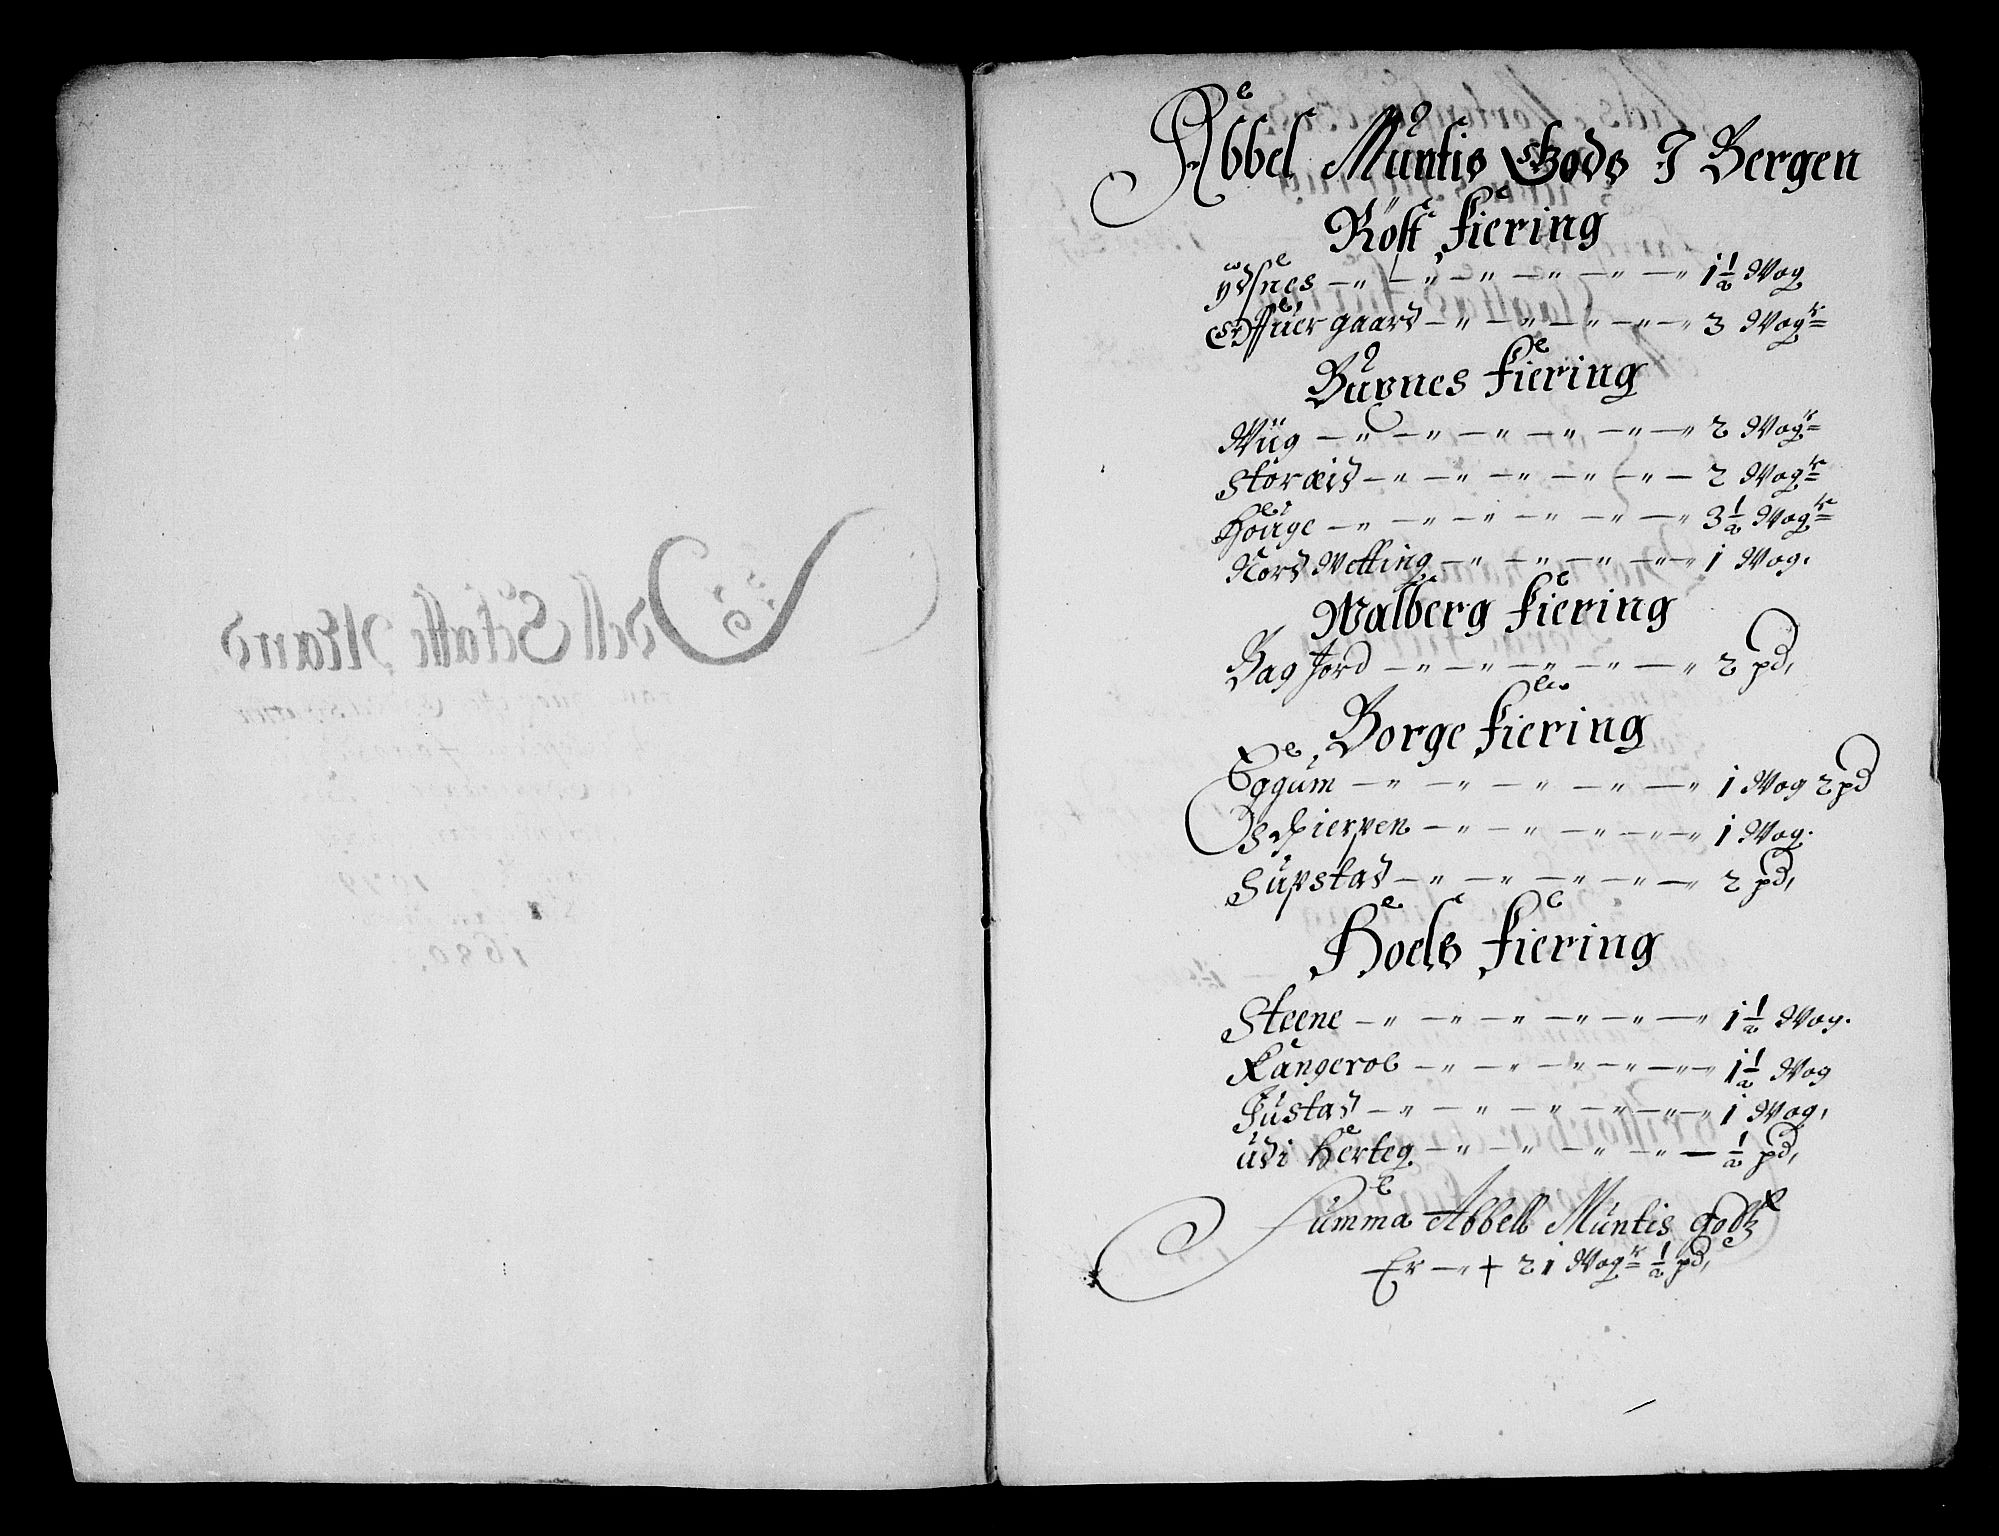 Abbel Müntis Gods I Bergen
Röst fiering
ydsnes — „ — „ — „ — „ — „ — „ 1 1/2 Wog
Offuer gaard — „ — „ — „ — „ — „ 3 Wogr
Buvnes fiering
Wiig — „ — „ — „ — „ — „ — „ 2 Wogr
Storæid — „ — „ — „ — „ — „ — 2 Wogr
Höüge — „ — „ — „ — „ — „ — „ 3 1/2 Wogr
Nord Wetting — „ — „ — „ — „ — „ 1 Wog.
Walberg fiering
Bag Jord — „ — „ — „ — „ — „ 2 pd,
Borge fiering
Eggum — „ — „ — „ — „ — „ 1 Wog 2 pd
Schierpen — „ — „ — „ — „ — „ 1 Wog.
Supstad — „ — „ — „ — „ — „ 2 pd,
Hoels fiering
Steene — „ — „ — „ — „ — „ — „ 1 1/2 Wog.
Kangeroe — „ — „ — „ — „ — „ — „ 1 1/2 Wog
Justad — „ — „ — „ — „ — „ — „ 1 Wog,
udi Herteg — „ — „ — „ — „ — 1/2 pd,
Summa Abbell Müntis godtz
Er — „ + 21 Wogr 1/2 pd,